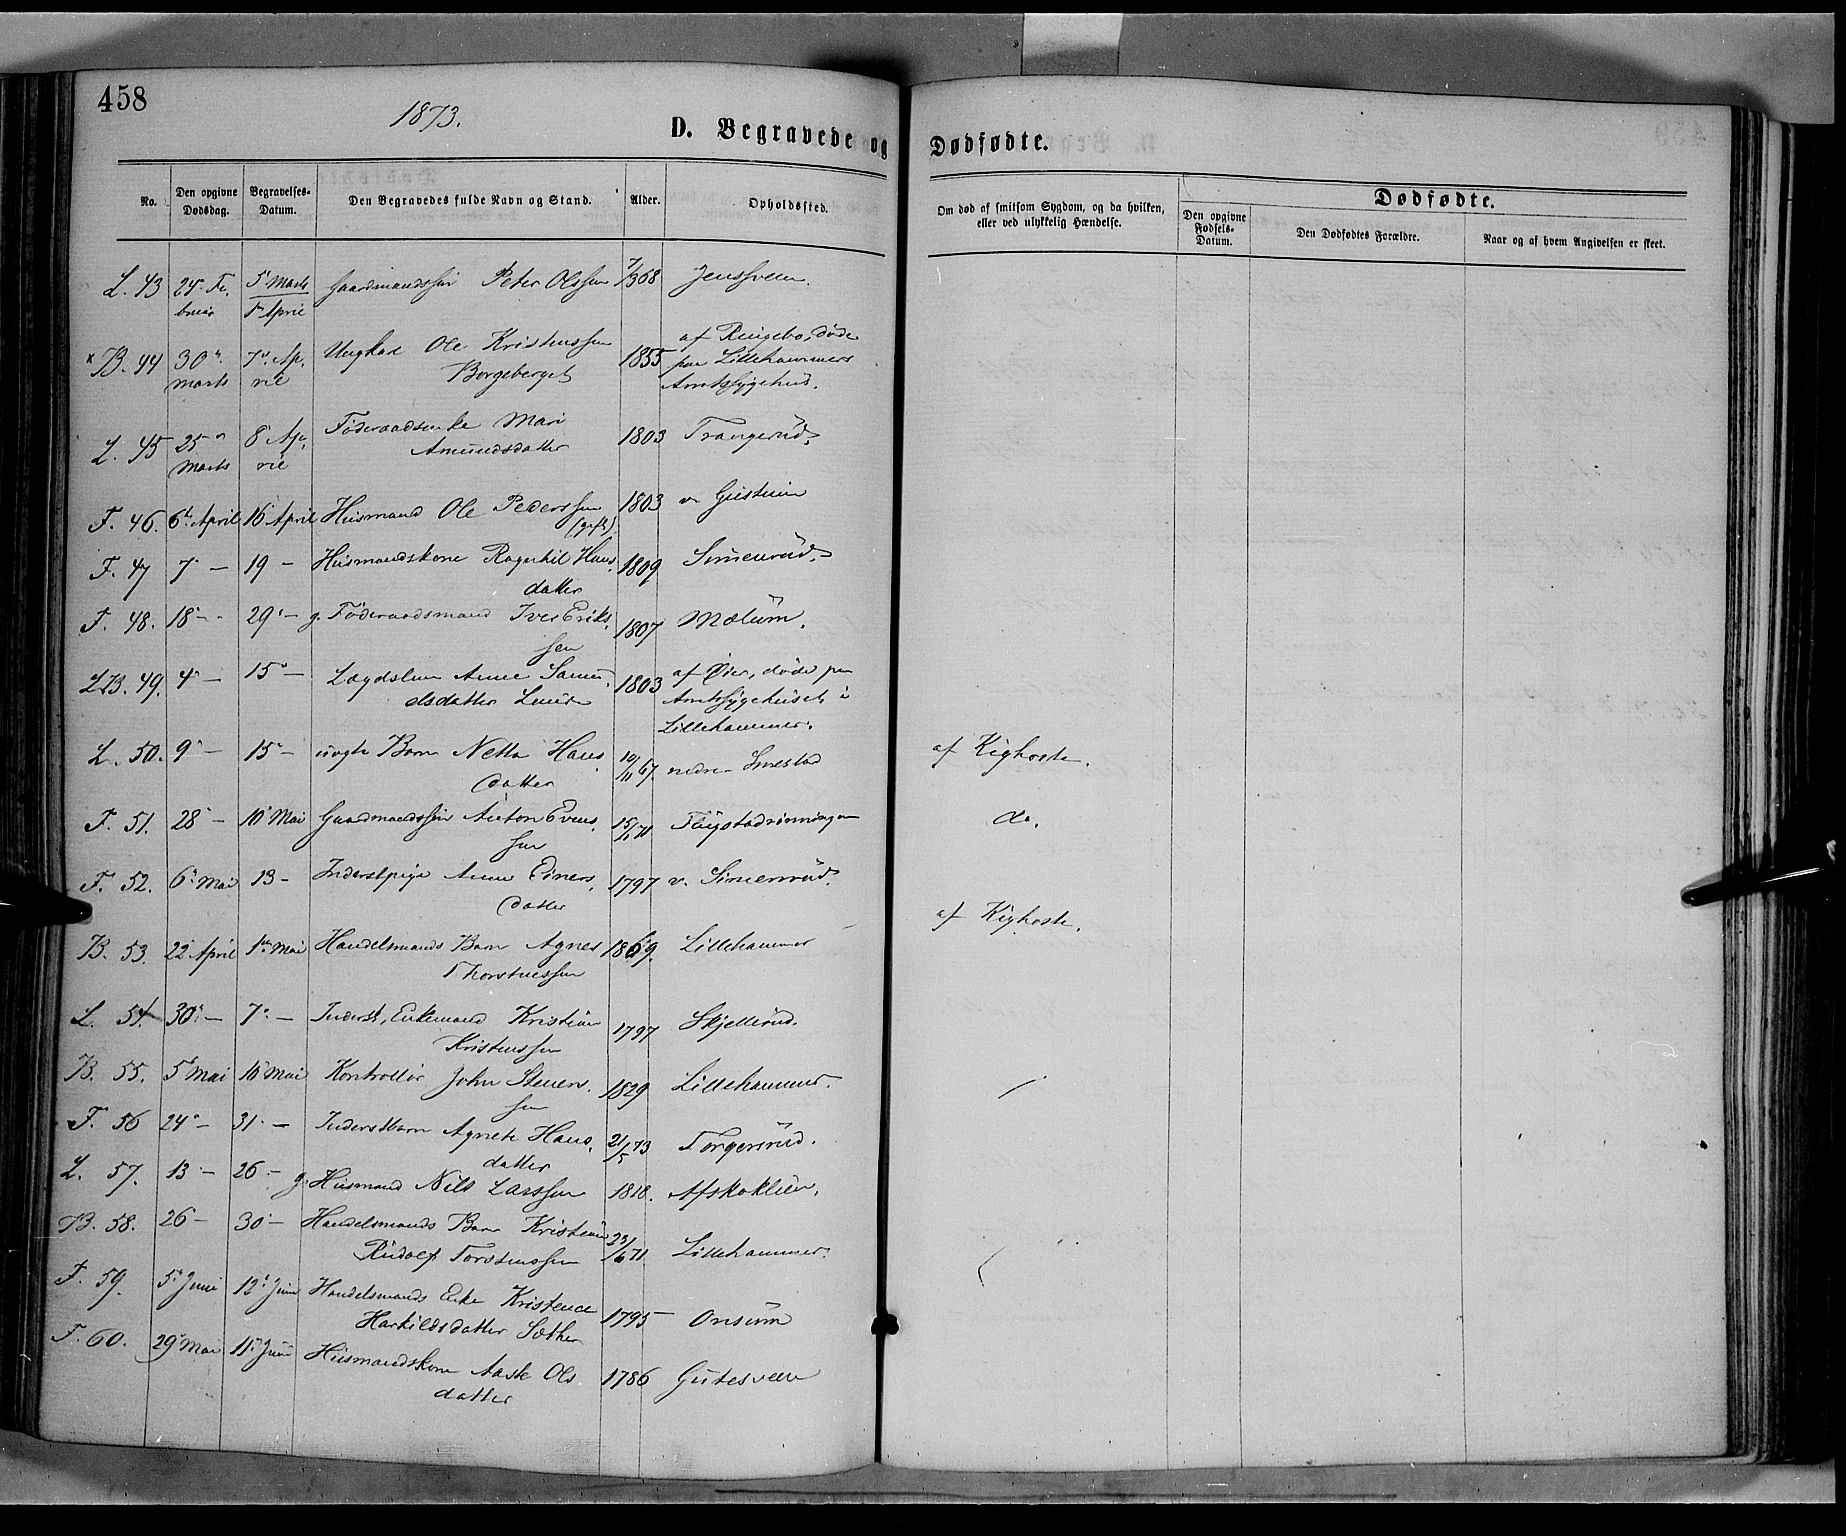 458
1873.
D. Begravede og Dødfødte.
No. Den opgivne Dødsdag. Begravelses-Datum. Den Begravedes fulde Navn og Stand. Alder. Opholdssted. Om død af smitsom Sygdom, og da hvilken, eller ved ulykkelig Hændelse. Dødfødte.
Den opgivne Fødsels-Datum. Den Dødfødtes Forældre. Naar og af hvem Angivelsen er skeet.
L. 43 24 Fe, 5' Marts Gaardmandssøn Peter Olssen 7/3 68 Jenssveen.
bruar 1ste April
x B. 44 30' 7' Ap, Ungkar Ole Kristenssen 1855 af Ringebo, døde
marts ril Borgeberget paa Lillehammers
Amtssygehus.
L. 45 25 8' Ap, Føderaadsenke Mari 1803 Trangerud.
Marts ril Amundsdatter
F. 46. 6te April 16 April Husmand Ole Pederssen 1803 v.
(gift)
F. 47 7' — 19 — Husmandskone Ragnhil Hans, 1809 Simenrud.
datter
F. 48. 18' — 29' — g. Føderaadsmand Iver Eriks, 1807 Mælum.
sen
LB. 49. 4' — 15' — Lægdslem Anne Samu, 1803 af Øier, døde paa
elsdatter Lunde Amtssygehuset i
Lillehammer.
L. 50. 9' — 15' — uægte Barn Netta Hans, 10/11 67. nedre Smestad af Kighoste.
datter
F. 51. 28' — 10' Mai Gaardmandssøn Anton Evens, 15/11 71 do.
sen
F. 52. 6' Mai 13 — Inderstpige Anne Einers, 1797 v. Simenrud.
datter
B. 53. 22 April 1ste Mai Handelsmands Barn Agnes 1869. Lillehammer af Kighoste.
Thorstenssen
L. 54. 30' — 7' — Inderst, Enkemand Kristian 1797 Skjellerud.
Kristenssen
B. 55. 5' Mai 10' Mai Kontrollør John Steners, 1829 Lillehammer.
sen
F. 56 24' — 31' — Inderstbarn Agnete Hans, 21/5 73 Torgersrud.
datter
L. 57. 13 — 26 — g. Husmand Nils Larssen 1818. Afskoklien.
B. 58. 26 — 30' — Handelsmands Barn Kristian 23/6 71 Lillehammer.
Rudolf Torstenssen
F. 59. 5' Juni 12' Juni Handelsmands Enke Kristence 1795 Onsum
Harkildsdatter Sæther
F. 60. 29' Mai 11' Juni Husmandskone Aaste Ols 1786 Gutesveen
datter